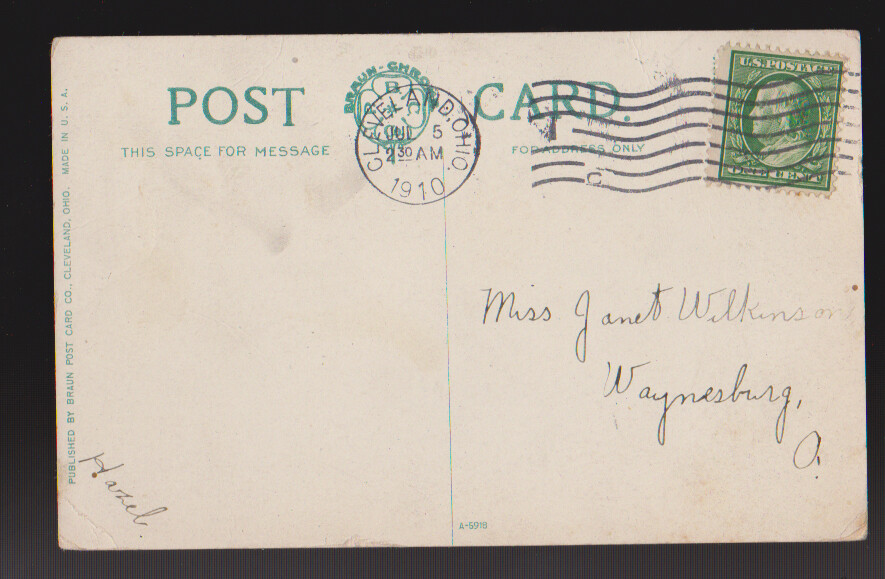 POST CARD.
BRAUN-CHRO
B
THIS SPACE FOR MESSAGE
FOR ADDRESS ONLY
CLEVELAND, OHIO.
5
2 30 AM
1910
C
U.S. POSTAGE
ONE CENT
Miss Janet Wilkinson
Waynesburg,
O.
Hazel.
PUBLISHED BY BRAUN POST CARD CO., CLEVELAND, OHIO. MADE IN U.S.A.
A-5918